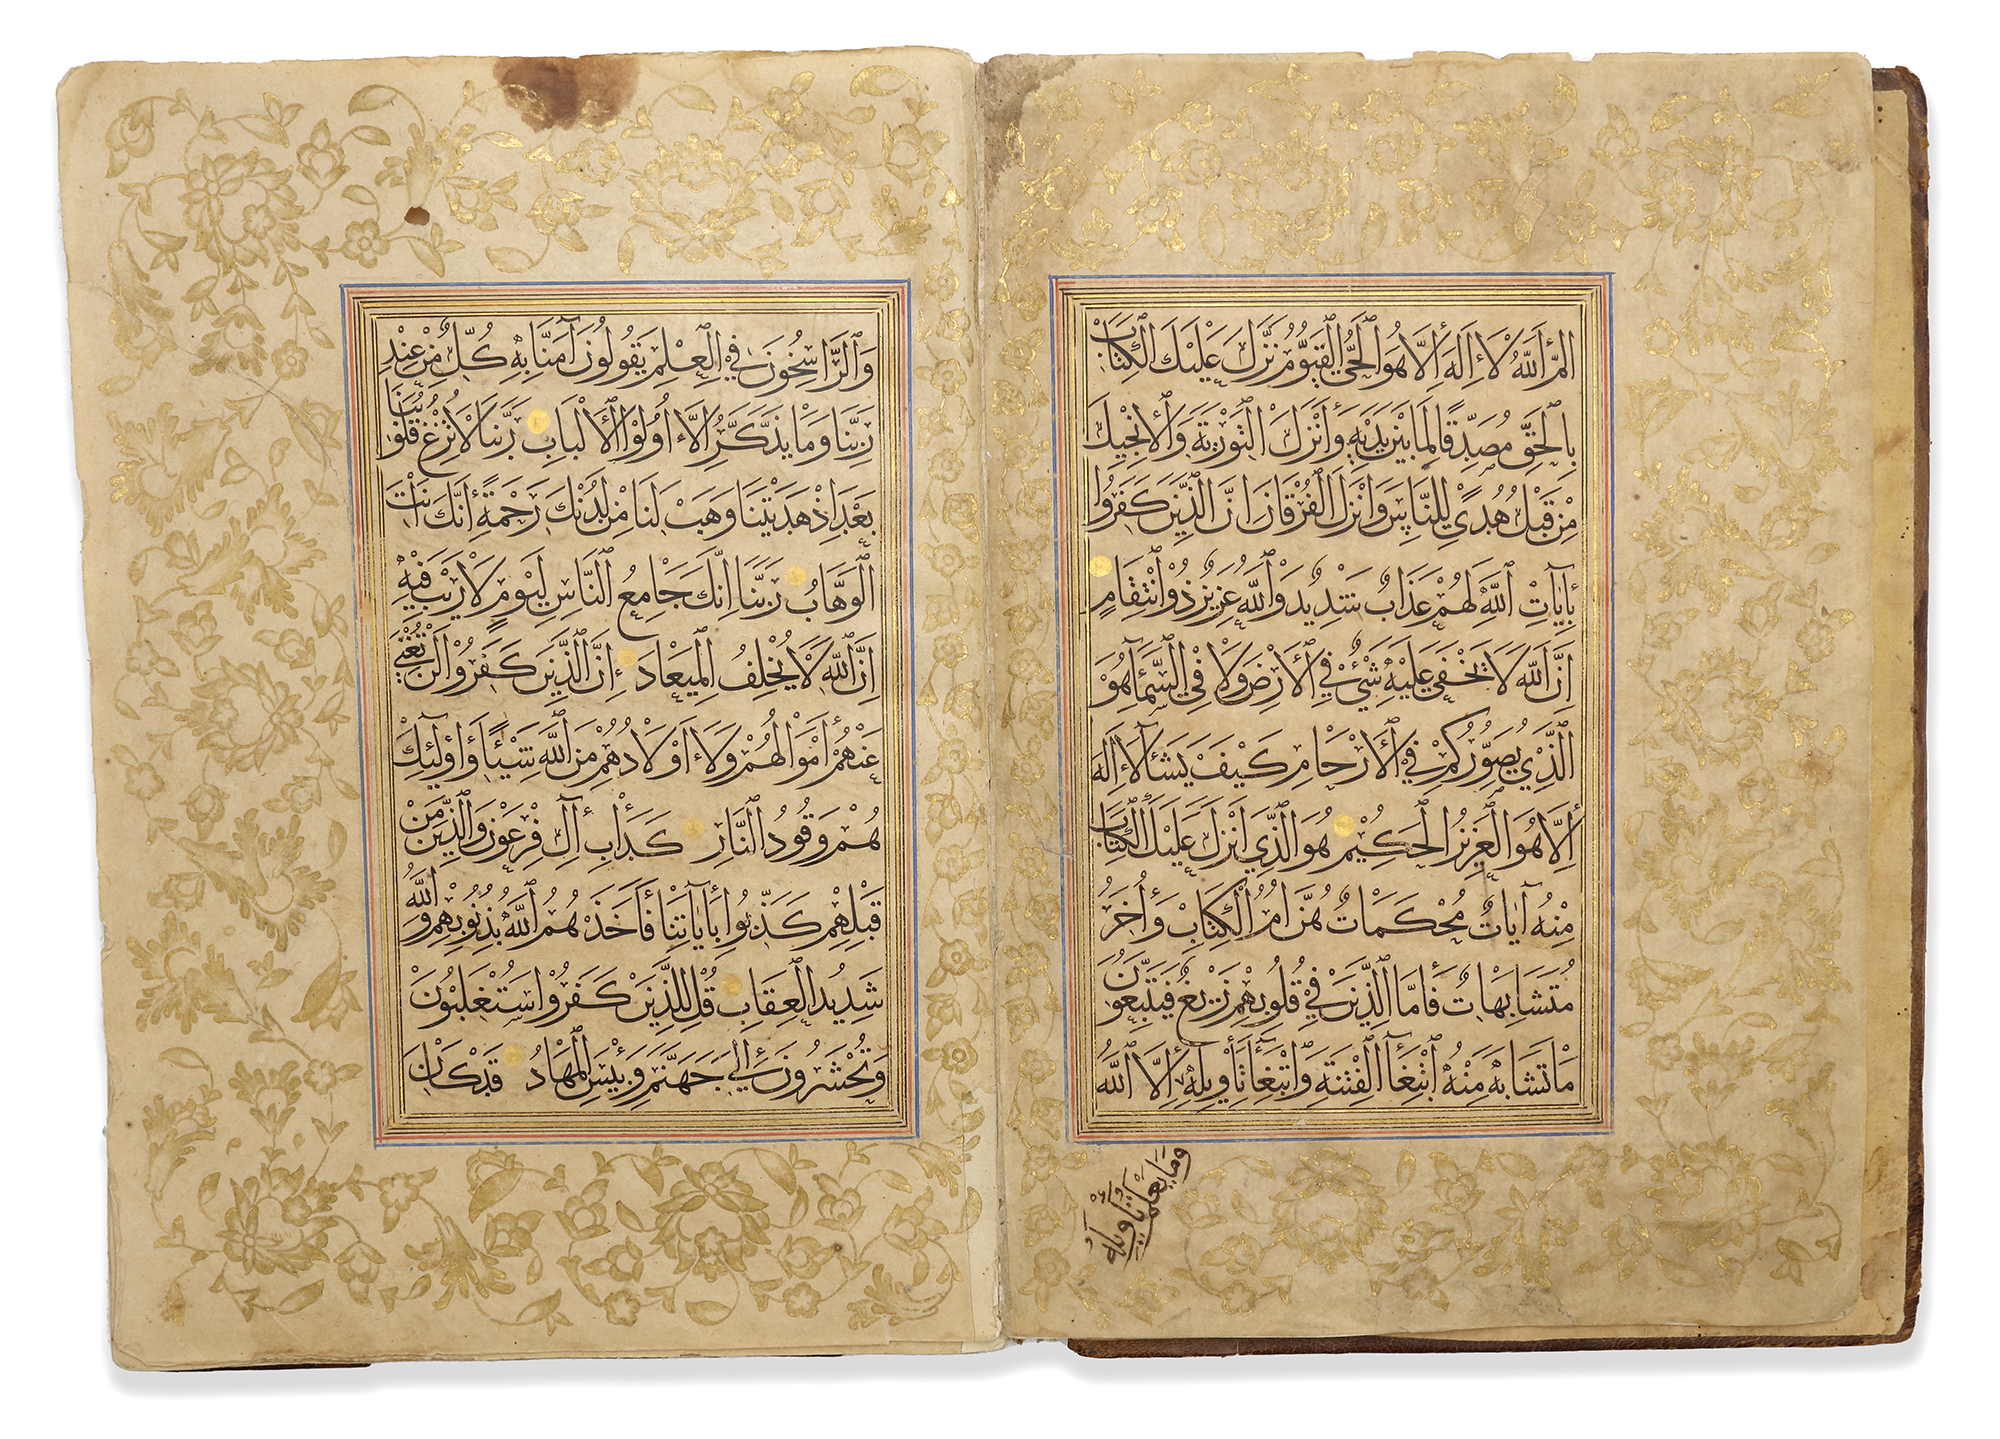 الم اَللّٰهُ لَا اِلَهَ اِلَّا هُوَ الْحَيُّ الْقَيُّومُ نَزَّلَ عَلَيْكَ الْكِتَابَ
بِالْحَقِّ مُصَدِّقًا لِمَا بَيْنَ يَدَيْهِ وَأَنْزَلَ التَّوْرٰيةَ وَالْاِنْجِيلَ
مِنْ قَبْلُ هُدًي لِلنَّاسِ وَاَنْزَلَ الْفُرْقَانَ اِنَّ الَّذِينَ كَفَرُوا
بِاٰيَاتِ اللّٰهِ لَهُمْ عَذَابٌ شَدِيدٌ وَاللّٰهُ عَزِيزٌ ذُو انْتِقَامٍ
اِنَّ اللّٰهَ لَا يَخْفَي عَلَيْهِ شَيْءٌ فِي الْاَرْضِ وَلَا فِي السَّمَآءِ هُوَ
الَّذِي يُصَوِّرُكُمْ فِي الْاَرْحَامِ كَيْفَ يَشَآءُ لَا اِلَهَ
اِلَّا هُوَ الْعَزِيزُ الْحَكِيمُ هُوَ الَّذِي اَنْزَلَ عَلَيْكَ الْكِتَابَ
مِنْهُ اٰيَاتٌ مُحْكَمَاتٌ هُنَّ اُمُّ الْكِتَابِ وَاُخَرُ
مُتَشَابِهَاتٌ فَاَمَّا الَّذِينَ فِي قُلُوبِهِمْ زَيْغٌ فَيَتَّبِعُونَ
مَا تَشَابَهَ مِنْهُ ابْتِغَآءَ الْفِتْنَةِ وَابْتِغَآءَ تَاْوِيلِهِ اِلَّا اللّٰهُ
وَمَا يَعْلَمُ تَاْوِيلَهُ
وَالرَّاسِخُونَ فِي الْعِلْمِ يَقُولُونَ اٰمَنَّا بِهِ كُلٌّ مِنْ عِنْدِ
رَبِّنَا وَمَا يَذَّكَّرُ اِلَّا اُولُوا الْاَلْبَابِ رَبَّنَا لَا تُزِغْ قُلُوبَنَا
بَعْدَ اِذْ هَدَيْتَنَا وَهَبْ لَنَا مِنْ لَدُنْكَ رَحْمَةً اِنَّكَ اَنْتَ
الْوَهَّابُ رَبَّنَا اِنَّكَ جَامِعُ النَّاسِ لِيَوْمٍ لَا رَيْبَ فِيهِ
اِنَّ اللّٰهَ لَا يُخْلِفُ الْمِيعَادَ اِنَّ الَّذِينَ كَفَرُوا لَنْ تُغْنِيَ
عَنْهُمْ اَمْوَالُهُمْ وَلَا اَوْلَادُهُمْ مِنَ اللّٰهِ شَيْئًا وَاُولٰٓئِكَ
هُمْ وَقُودُ النَّارِ كَدَاْبِ اٰلِ فِرْعَوْنَ وَالَّذِينَ مِنْ
قَبْلِهِمْ كَذَّبُوا بِاٰيَاتِنَا فَاَخَذَهُمُ اللّٰهُ بِذُنُوبِهِمْ وَاللّٰهُ
شَدِيدُ الْعِقَابِ قُلْ لِلَّذِينَ كَفَرُوا سَتُغْلَبُونَ
وَتُحْشَرُونَ اِلَي جَهَنَّمَ وَبِئْسَ الْمِهَادُ قَدْ كَانَ